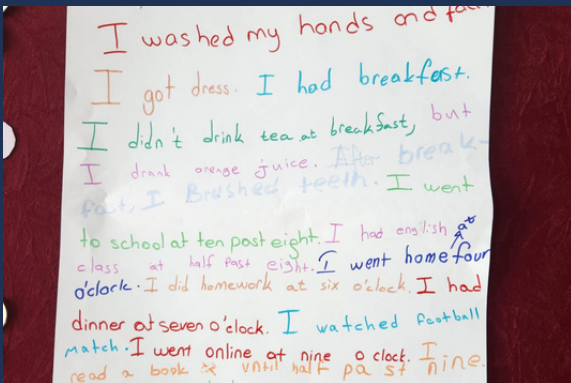 I washed my hands and
I got dress. I had breakfast.
I didn't drink tea at breakfast, but
I drank orenge juice. After break-
fast, I Brushed teeth. I went
to school at ten past eight. I had english
class at half past eight. I went home at four
o'clock. I did homework at six o'clock. I had
dinner at seven o'clock. I watched football
match. I went online at nine o clock. I
read a book until half past nine.